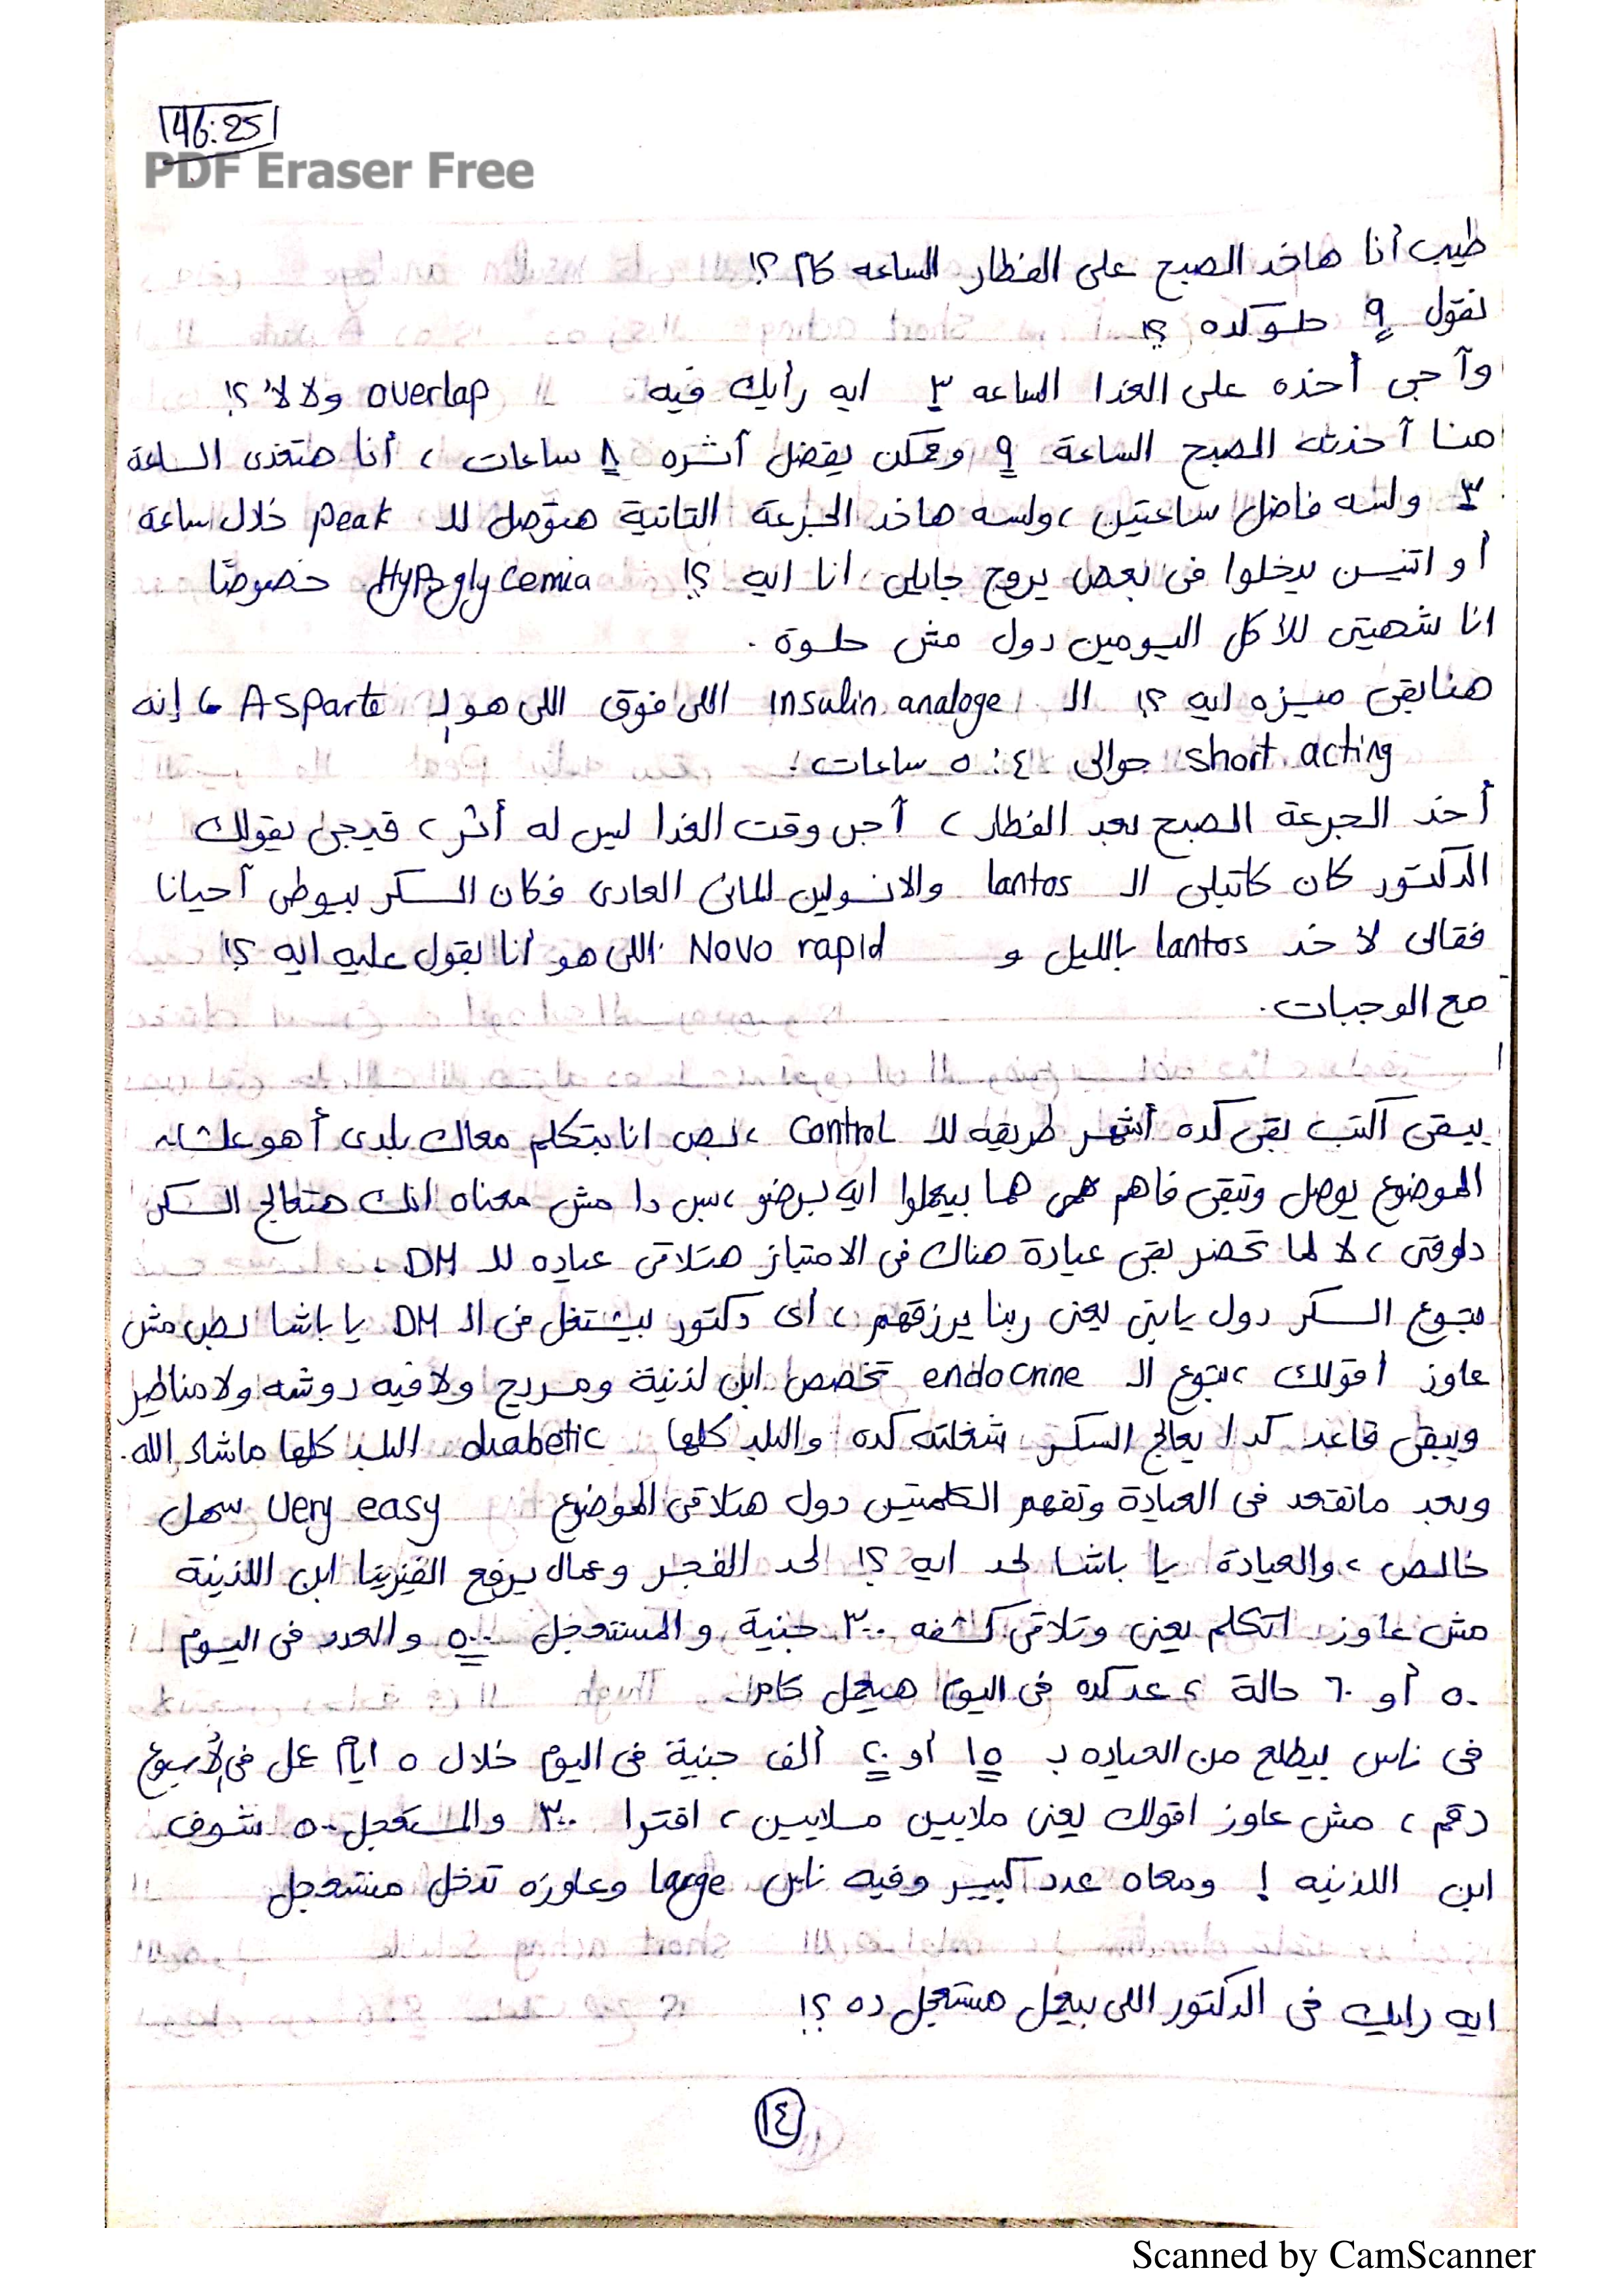 46:25
PDF Eraser Free
طيب أنا هاخد الصبح على الفطار الساعه كام ؟!
نقول ٩ حلو كده ؟!
وآجى أخده على الغدا الساعه ٣ ايه رأيك فيه overlap ولا لأ ؟!
هنا آخدته الصبح الساعة ٩ وممكن يفضل أثره ٨ ساعات ، أنا هتغدى الساعة
٣ ولسه فاضل ساعتين ، ولسه هاخد الجرعة التانية هتوصل للـ peak خلال ساعة
أو اتنيسن يدخلوا فى بعض يروح جايلى انا ايه ؟! Hypoglycemia خصوصًا
انا شهيتى للأكل اليومين دول مش حلوة .
هنا بقى ميزه ايه ؟! الـ insulin analoge اللى فوق اللى هو لـ Asparte ، إنه
short acting حوالى ٤ : ٥ ساعات .
أخد الجرعة الصبح بعد الفطار ، آجى وقت الغدا ليس له أثر ، فيجى يقولك
الدكتور كان كاتبلى الـ lantos والانسولين المائى العادى فكان السكر بيوطى آحيانا
فقالى لأ خد lantos بالليل و Novo rapid اللى هو أنا بقول عليه ايه ؟!
مع الوجبات .
يبقى اكتب بقى كده أشهر طريقه للـ control ، بص انا بتكلم معاك بلدى أهو علشان
الموضوع يوصل وتبقى فاهم هما بيعملوا ايه برضو ، بس دا مش معناه انك هتعالج السكر
دلوقتى ، لا لما تحضر بقى عيادة هناك فى الامتياز هتلاقى عياده للـ DM .
بتوع السكر دول يابنى يعنى ربنا يرزقهم ، أى دكتور بيشتغل فى الـ DM يا باشا بص مش
عاوز اقولك ، بتوع الـ endocrine تخصص ابن لذنية ومريح ولا فيه دوشه ولا مناظير
ويبقى قاعد كدا يعالج السكر شغلته كده والبلد كلها diabetic البلد كلها ماشاء الله .
وبعد ماتقعد فى العيادة وتفهم الكلمتين دول هتلاقى الموضوع very easy سهل
خالص ، والعيادة يا باشا لحد ايه ؟! لحد الفجر وعمال يرفع الفيزيتا ابن اللذنية
مش عاوز اتكلم يعنى وتلاقى كشفه ٣٠٠ جنية والمستعجل ٥٠٠ والعدد فى اليوم
٥٠ أو ٦٠ حالة ، عد كده فى اليوم هيعمل كام .
فى ناس بيطلع من العياده بـ ١٥ أو ٢٠ ألف جنية فى اليوم خلال ٥ ايام عمل فى الأسبوع
رقم ، مش عاوز اقولك يعنى ملايين ملايين ، افترا ٣٠٠ والمستعجل ٥٠٠ شوف
ابن اللذنيه ! ومعاه عدد كبير وفيه ناس large وعاوزه تدخل مستعجل
ايه رايك فى الدكتور اللى بيعمل مستعجل ده ؟!
١٤
Scanned by CamScanner